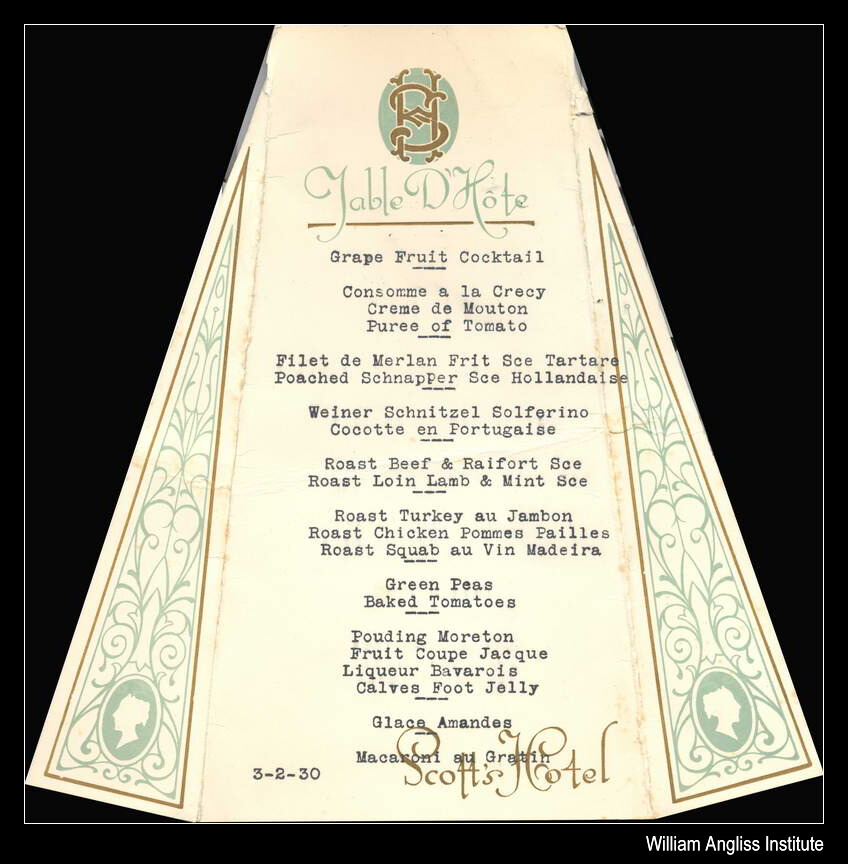 SH
Table D'Hôte
Grape Fruit Cocktail
Consomme a la Crecy
Creme de Mouton
Puree of Tomato
Filet de Merlan Frit Sce Tartare
Poached Schnapper Sce Hollandaise
Weiner Schnitzel Solferino
Cocotte en Portugaise
Roast Beef & Raifort Sce
Roast Loin Lamb & Mint Sce
Roast Turkey au Jambon
Roast Chicken Pommes Pailles
Roast Squab au Vin Madeira
Green Peas
Baked Tomatoes
Pouding Moreton
Fruit Coupe Jacque
Liqueur Bavarois
Calves Foot Jelly
Glace Amandes
Macaroni au Gratin
3-2-30
Scott's Hotel
William Angliss Institute